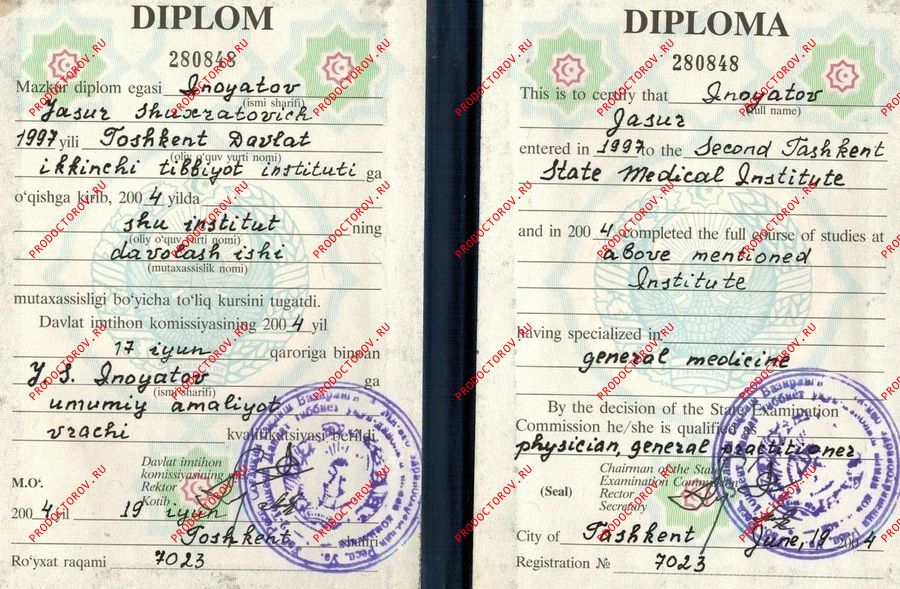 DIPLOM
280848
Mazkur diplom egasi Inoyatov
(ismi sharifi)
Jasur Shuxratovich
1997 yili Toshkent Davlat
(oliy o'quv yurti nomi)
ikkinchi tibbiyot instituti ga
o'qishga kirib, 2004 yilda
shu institut ning
(oliy o'quv yurti nomi)
davolash ishi
(mutaxassislik nomi)
mutaxassisligi bo'yicha to'liq kursini tugatdi.
Davlat imtihon komissiyasining 2004 yil
17 iyun qaroriga binoan
Y. S. Inoyatov ga
(ismi sharifi)
umumiy amaliyot
vrachi kvalifikatsiyasi berildi.
Davlat imtihon
komissiyasining
M.O'. Rektor
Kotib
2004 yil 19 iyun
Toshkent shahri
Ro'yxat raqami 7023
DIPLOMA
280848
This is to certify that Inoyatov
(full name)
Jasur
entered in 1997 to the Second Tashkent
State Medical Institute
and in 2004 completed the full course of studies at
above mentioned
Institute
having specialized in
general medicine
By the decision of the State Examination
Commission he/she is qualified as
physician, general practitioner
Chairman of the State
Examination Commission
(Seal) Rector
Secretary
City of Tashkent June, 19 2004
Registration № 7023
PRODOCTOROV.RU